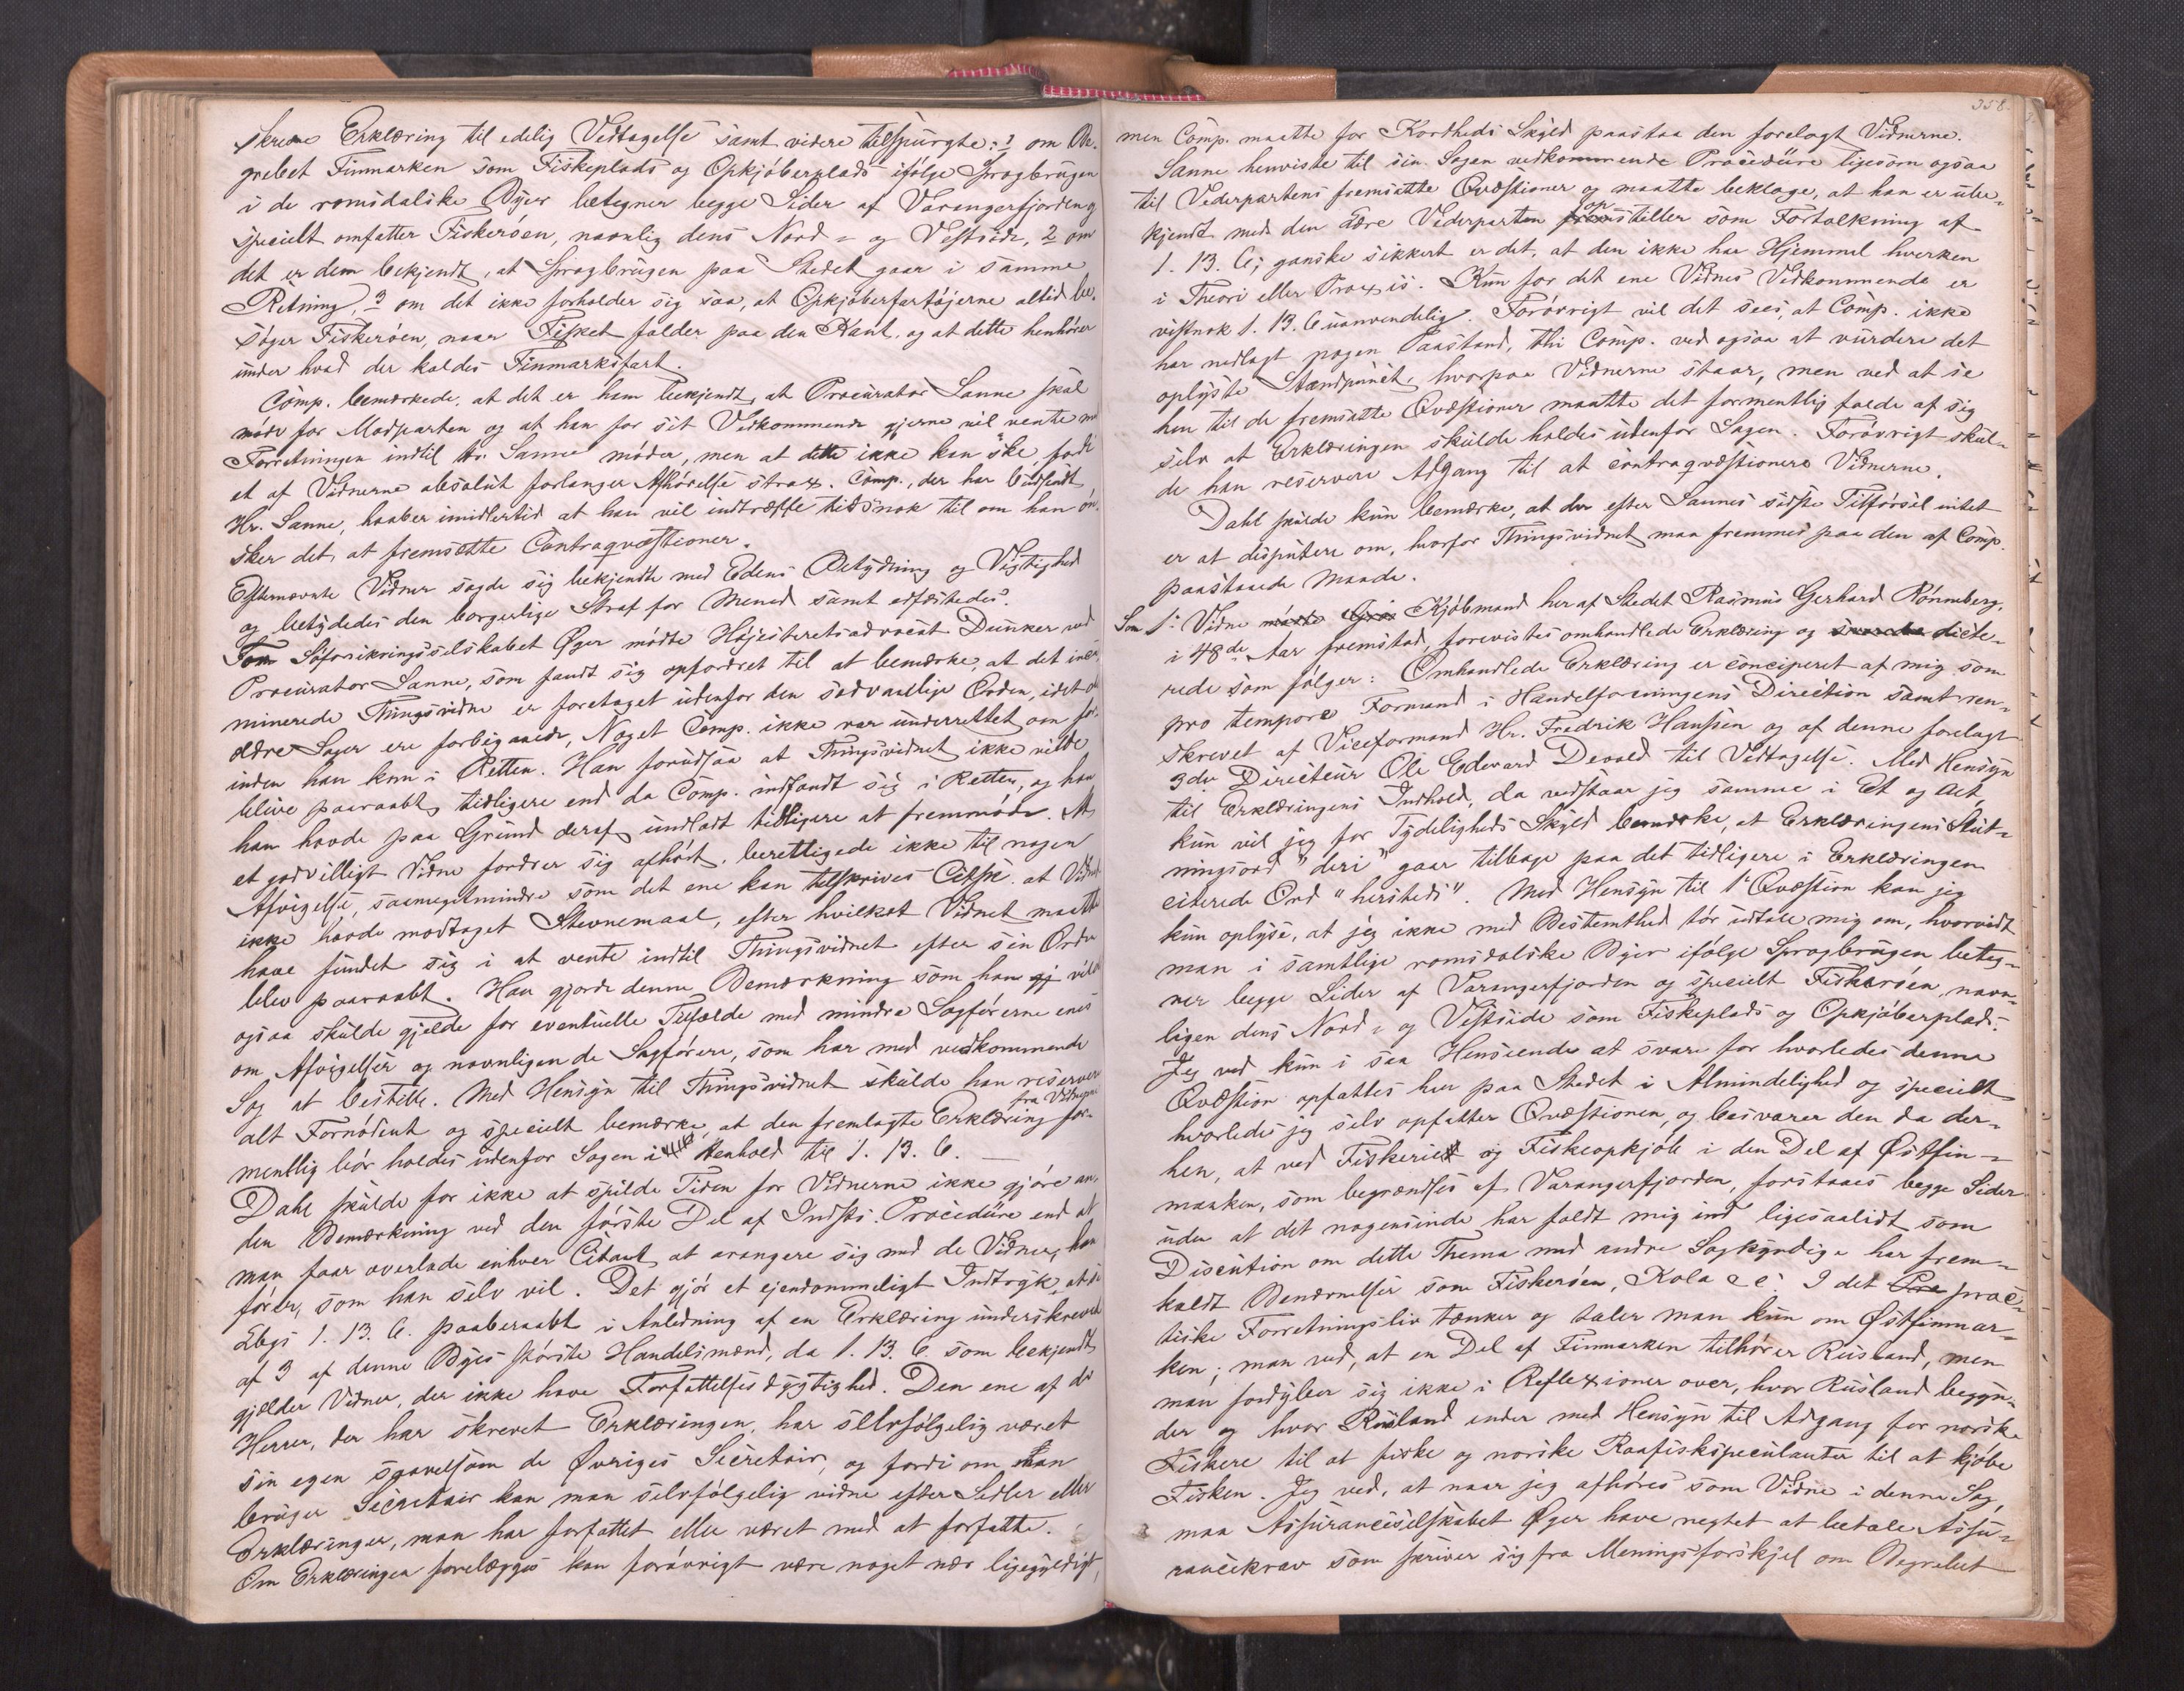 skrevne Erklæring til edelig Vedtagelse samt videre tilspurgte: 1 om Be-
grebet Finmarken som Fiskeplads og Opkjøberplads ifølge Sprogbrugen
i de romsdalske Byer betegner begge Sider af Varangerfjorden og
specielt omfatter Fiskerøen, navnlig dens Nord- og Vestside, 2 om
det er dem bekjendt, at Sprogbrugen paa Stedet gaar i samme
Retning, 3 om det ikke forholder sig saa, at Opkjøberfartøjerne altid be-
søger Fiskerøen, naar Fisket falder paa den Kant, og at dette henhører
under hvad der kaldes Finmarksfart.
Comp. bemærkede, at det er ham bekjendt, at Procurator Sanne skal
møde for Modparten og at han for sit Vedkommende gjerne vil vente med
Forretningen indtil Hr. Sanne møder, men at dette ikke kan ske fordi
et af Vidnerne absolut forlanger Afhørelse strax. Comp., der har budsendt
Hr. Sanne, haaber imidlertid at han vil indtræffe tidsnok til om han øn-
sker det, at fremsætte Contraqvæstioner.
Efternævnte Vidner sagde sig bekjendte med Edens Betydning og Vigtighed
og betydedes den borgerlige Straf for Mened samt edfæstedes.
For Søforsikringsselskabet Øger mødte Højesteretsadvocat Dunker ved
Procurator Sanne, som fandt sig opfordret til at bemærke, at det incam-
minerede Thingsvidne er foretaget udenfor den sædvanlige Orden, idet
ældre Sager ere forbigaaede, Noget Comp. ikke var underrettet om for-
inden han kom i Retten. Han forudsaa at Thingsvidnet ikke vilde
blive paaraabt tidligere end da Comp. indfandt sig i Retten, og han
han havde paa Grund deraf undladt tidligere at fremmøde. At
et godvilligt Vidne fordrer sig afhørt, berettigede ikke til nogen
Afvigelse, saameget mindre som det ene kan tilskrives Citssk. at Vidnet
ikke havde modtaget Stevnemaal, efter hvilket Vidnet maatte
have fundet sig i at vente indtil Thingsvidnet efter sin Orden
blev paaraabt. Han gjorde denne Bemærkning som han gj vilde
ogsaa skulde gjelde for eventuelle Tilfælde med mindre Sagførerne enes
om Afvigelser og navnligen de Sagførere, som har med vedkommende
Sag at bestille. Med Hensyn til Thingsvidnet skulde han reservere
alt Fornødent og specielt bemærke, at den fremlagte Erklæring fra Vidnerne for-
mentlig bør holdes udenfor Sagen i Henhold til 1. 13. 6.
Dahl skulde for ikke at spilde Tiden for Vidnerne ikke gjøre an-
den Bemærkning ved den første Del af Indsts. Procedure end at
man faar overlade enhver Citant at arangere sig med de Vidner, han
fører, som han selv vil. Det gjør et ejendommeligt Indtryk, at se
Lbgs 1. 13. 6. paaberaabt i Anledning af en Erklæring underskrevet
af 3 af denne Byes største Handelsmænd, da 1. 13. 6. som bekjendt
gjælder Vidner, der ikke have Forfattelsesdygtighed. Den ene af de
Herrer, der har skrevet Erklæringen, har selvfølgelig været
sin egen saavelsom de Øvriges Secretair, og fordi om man
bruger Secretair kan man selvfølgelig vidne efter Sedler eller
Erklæringer, man har forfattet eller været med at forfatte.
Om Erklæringen forelægges kan forøvrigt være noget nær ligegyldigt,
358.
men Comp. maatte for Kortheds Skyld paastaa den forelagt Vidnerne.
Sanne henviste til sin Sagen vedkommende Procedure ligesom ogsaa
til Vederpartens fremsatte Qvæstioner og maatte beklage, at han er ube-
kjendt med den Lære Vederparten opstiller som Fortolkning af
1. 13. 6; ganske sikkert er det, at den ikke har Hjemmel hverken
i Theori eller Praxis. Kun for det ene Vidnes Vedkommende er
vistnok 1. 13. 6 uanvendelig. Forøvrigt vil det sees, at Comp. ikke
har nedlagt nogen Paastand, thi Comp. ved ogsaa at vurdere det
oplyste Standpunct, hvorpaa Vidnerne staar, men ved at se
hen til de fremsatte Qvæstioner maatte det formentlig falde af sig
selv at Erklæringen skulde holdes udenfor Sagen. Forøvrigt skul-
de han reservere Adgang til at contraqvæstionere Vidnerne.
Dahl skulde kun bemærke, at der efter Sannes sidste Tilførsel intet
er at disputere om, hvorfor Thingsvidnet maa fremmes paa den af Comp.
paastaaede Maade.
Som 1ste Vidne Kjøbmand her af Stedet Rasmus Gerhard Rønneberg,
i 48de Aar fremstod, forevistes omhandlede Erklæring og dicte-
rede som følger: Omhandlede Erklæring er conciperet af mig som
pro tempore Formand i Handelsforeningens Direction samt ren-
skrevet af Viceformand Hr. Fredrik Hanssen og af denne forelagt
3die Directeur Ole Edevard Devold til Vedtagelse. Med Hensyn
til Erklæringens Indhold, da vedstaar jeg samme i Et og Alt,
kun vil jeg for Tydeligheds Skyld bemærke, at Erklæringens Slut-
ningsord "deri" gaar tilbage paa det tidligere i Erklæringen
citerede Ord "hersteds". Med Hensyn til 1ste Qvæstion kan jeg
kun oplyse, at jeg ikke med Bestemthed tør udtale mig om, hvorvidt
man i samtlige romsdalske Byer ifølge Sprogbrugen beteg-
ner begge Sider af Varangerfjorden og specielt Fiskerøen, navn-
ligen dens Nord- og Vestside som Fiskeplads og Opkjøberplads.
Jeg ved kun i saa Henseende at svare for hvorledes denne
Qvæstion opfattes her paa Stedet i Almindelighed og specielt
hvorledes jeg selv opfatter Qvæstionen, og besvarer den da der-
hen, at ved Fiskeriet og Fiskeopkjøb i den Del af Østfin-
marken, som begrændses af Varangerfjorden, forstaaes begge Sider
uden at det nogensinde har faldt mig ind ligesaalidt som
Discution om dette Thema med andre Sagkyndige har frem-
kaldt Benævnelser som Fiskerøen, Kola &c. I det prac-
tiske Forretningsliv tænker og taler man kun om Østfinmar-
ken; man ved, at en Del af Finmarken tilhører Rusland, men
man fordyber sig ikke i Reflexioner over, hvor Rusland begyn-
der og hvor Rusland ender med Hensyn til Adgang for norske
Fiskere til at fiske og norske Raafiskspeculanter til at kjøbe
Fisken. Jeg ved, at naar jeg afhøres som Vidne i denne Sag,
maa Assuranceselskabet Øger have negtet at betale Assu-
rancekrav som skriver sig fra Meningsforskjel om Begrebet